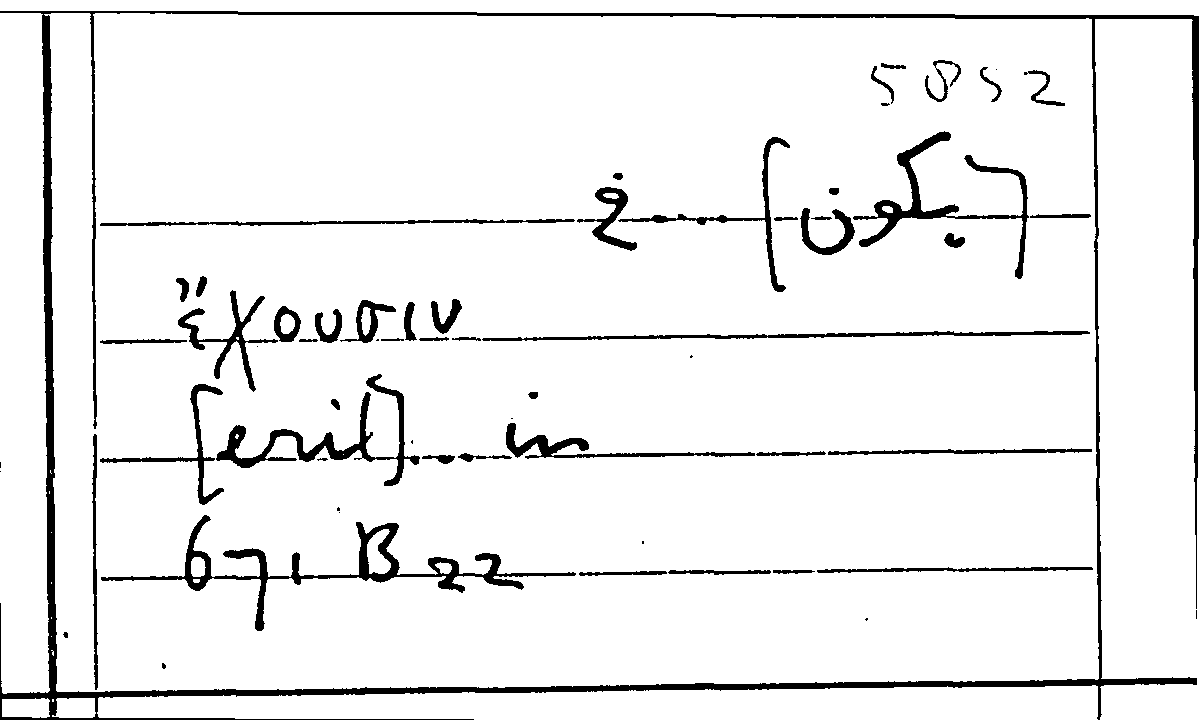 5852
[يكون] .... في
ἔχουσιν
[erit]... in
671 B 22